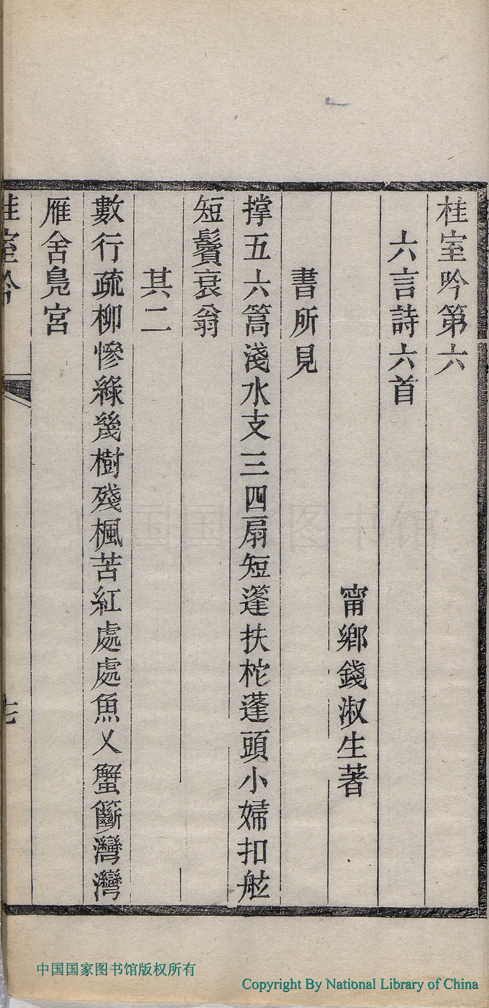 桂室吟第六
六言詩六首
甯鄉錢淑生著
書所見
撐五六篙淺水支三四扇短篷扶柁蓬頭小婦扣舷
短鬢衰翁
其二
數行疏柳慘綠幾樹殘楓苦紅處處魚乂蟹籪灣灣
雁舍鳧宮
桂室吟
七
中国国家图书馆
中国国家图书馆版权所有
Copyright By National Library of China